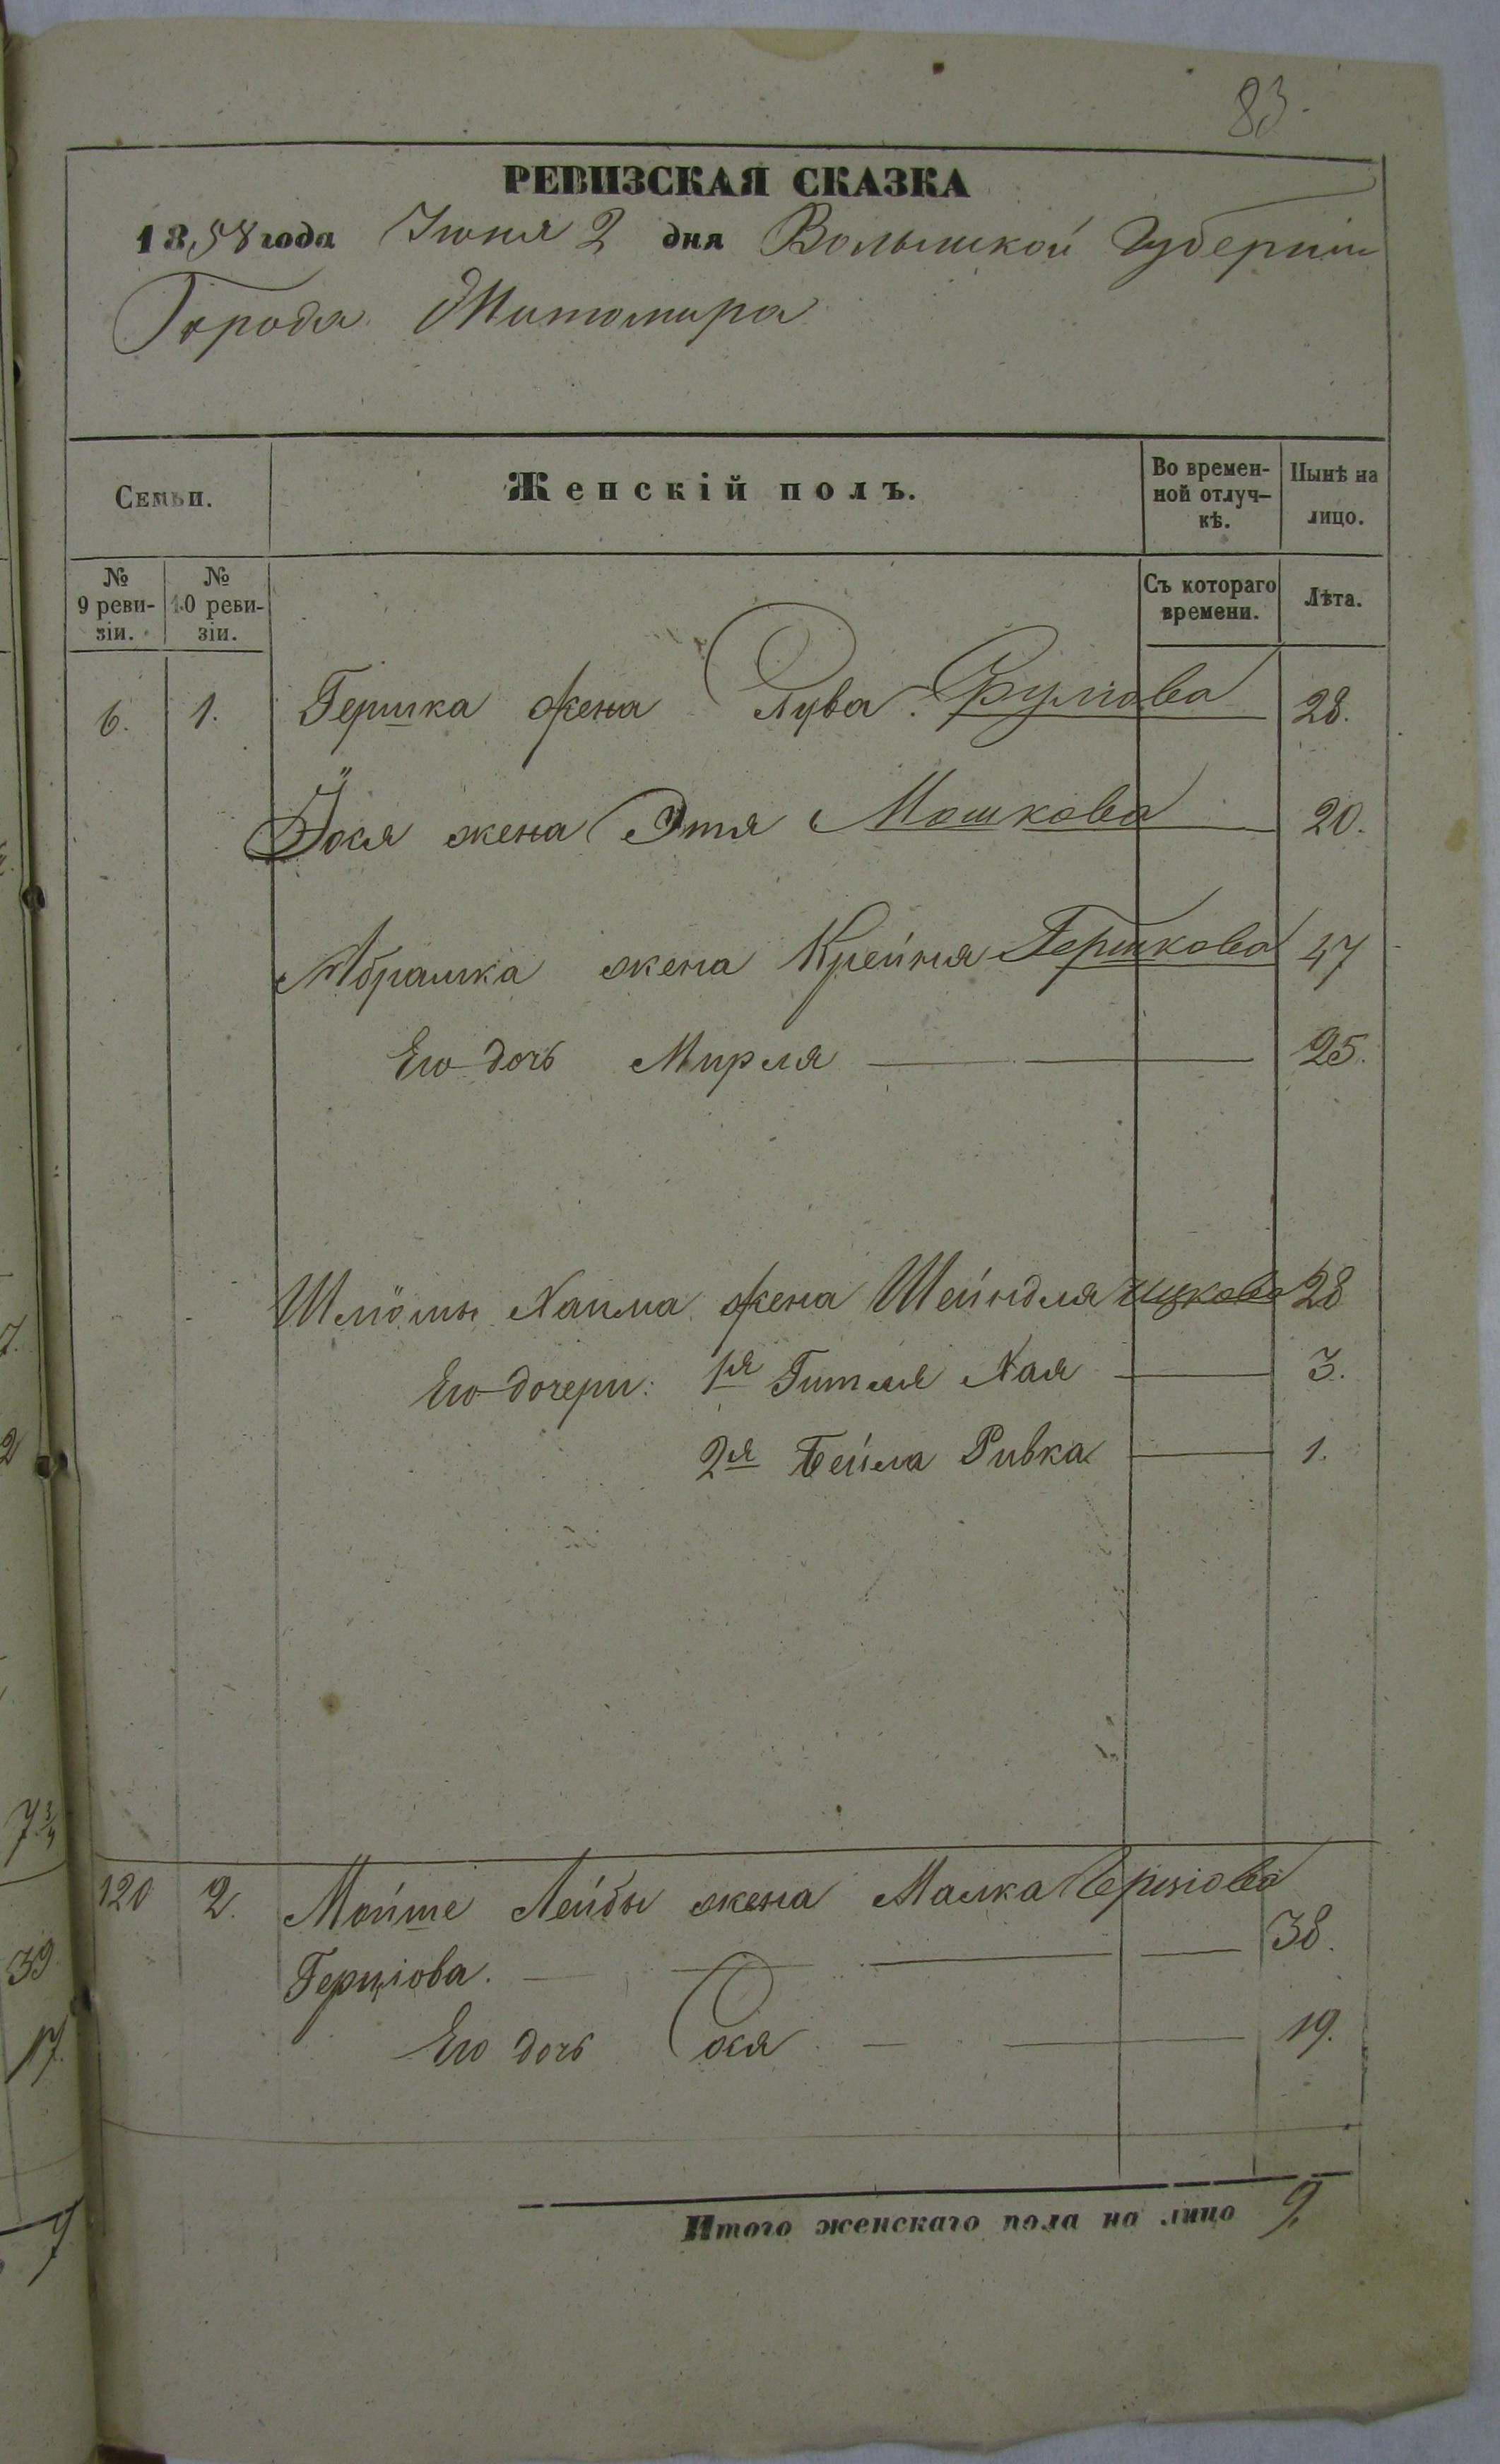 83.
РЕВИЗСКАЯ СКАЗКА
1858 года Іюня 2 дня Волынской Губерніи
Города Житомира
Семьи.
Женскій полъ.
Во времен-
ной отлуч-
кѣ.
Нынѣ на
лицо.
№
9 реви-
зіи.
№
10 реви-
зіи.
Съ котораго
времени.
Лѣта.
6. 1. Гершка жена 28.
Іося жена Этя Мошкова 20.
Абрашка жена Крейня Гершкова 47
Его дочь Мирля 25.
Шліомы Хаима жена Шейндля Ицкова 28
Его дочери: 1я Гитля Хая 3.
2я Бейла Ривка 1.
120 2. Мойше Лейбы жена Малка
Герціова. 38.
Его дочь Сося 19.
Итого женскаго пола на лицо 9.
7 3/4
39
17.